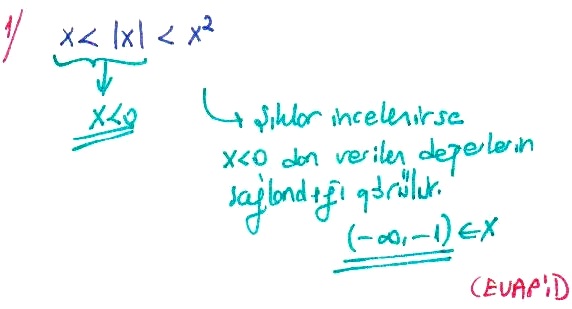 1/
x < |x| < x²
x<0
Şıklar incelenirse
x<0 dan verilen değerlerin
sağlandığı görülür.
(-∞, -1) ∈ X
(CEVAP: D)